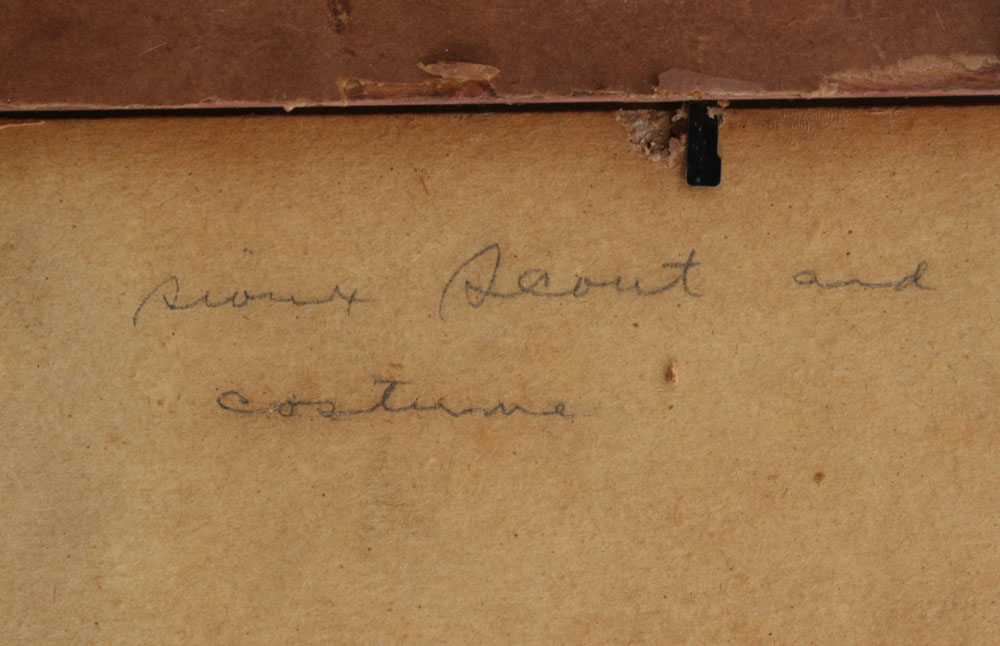 sioux Scout and
costume